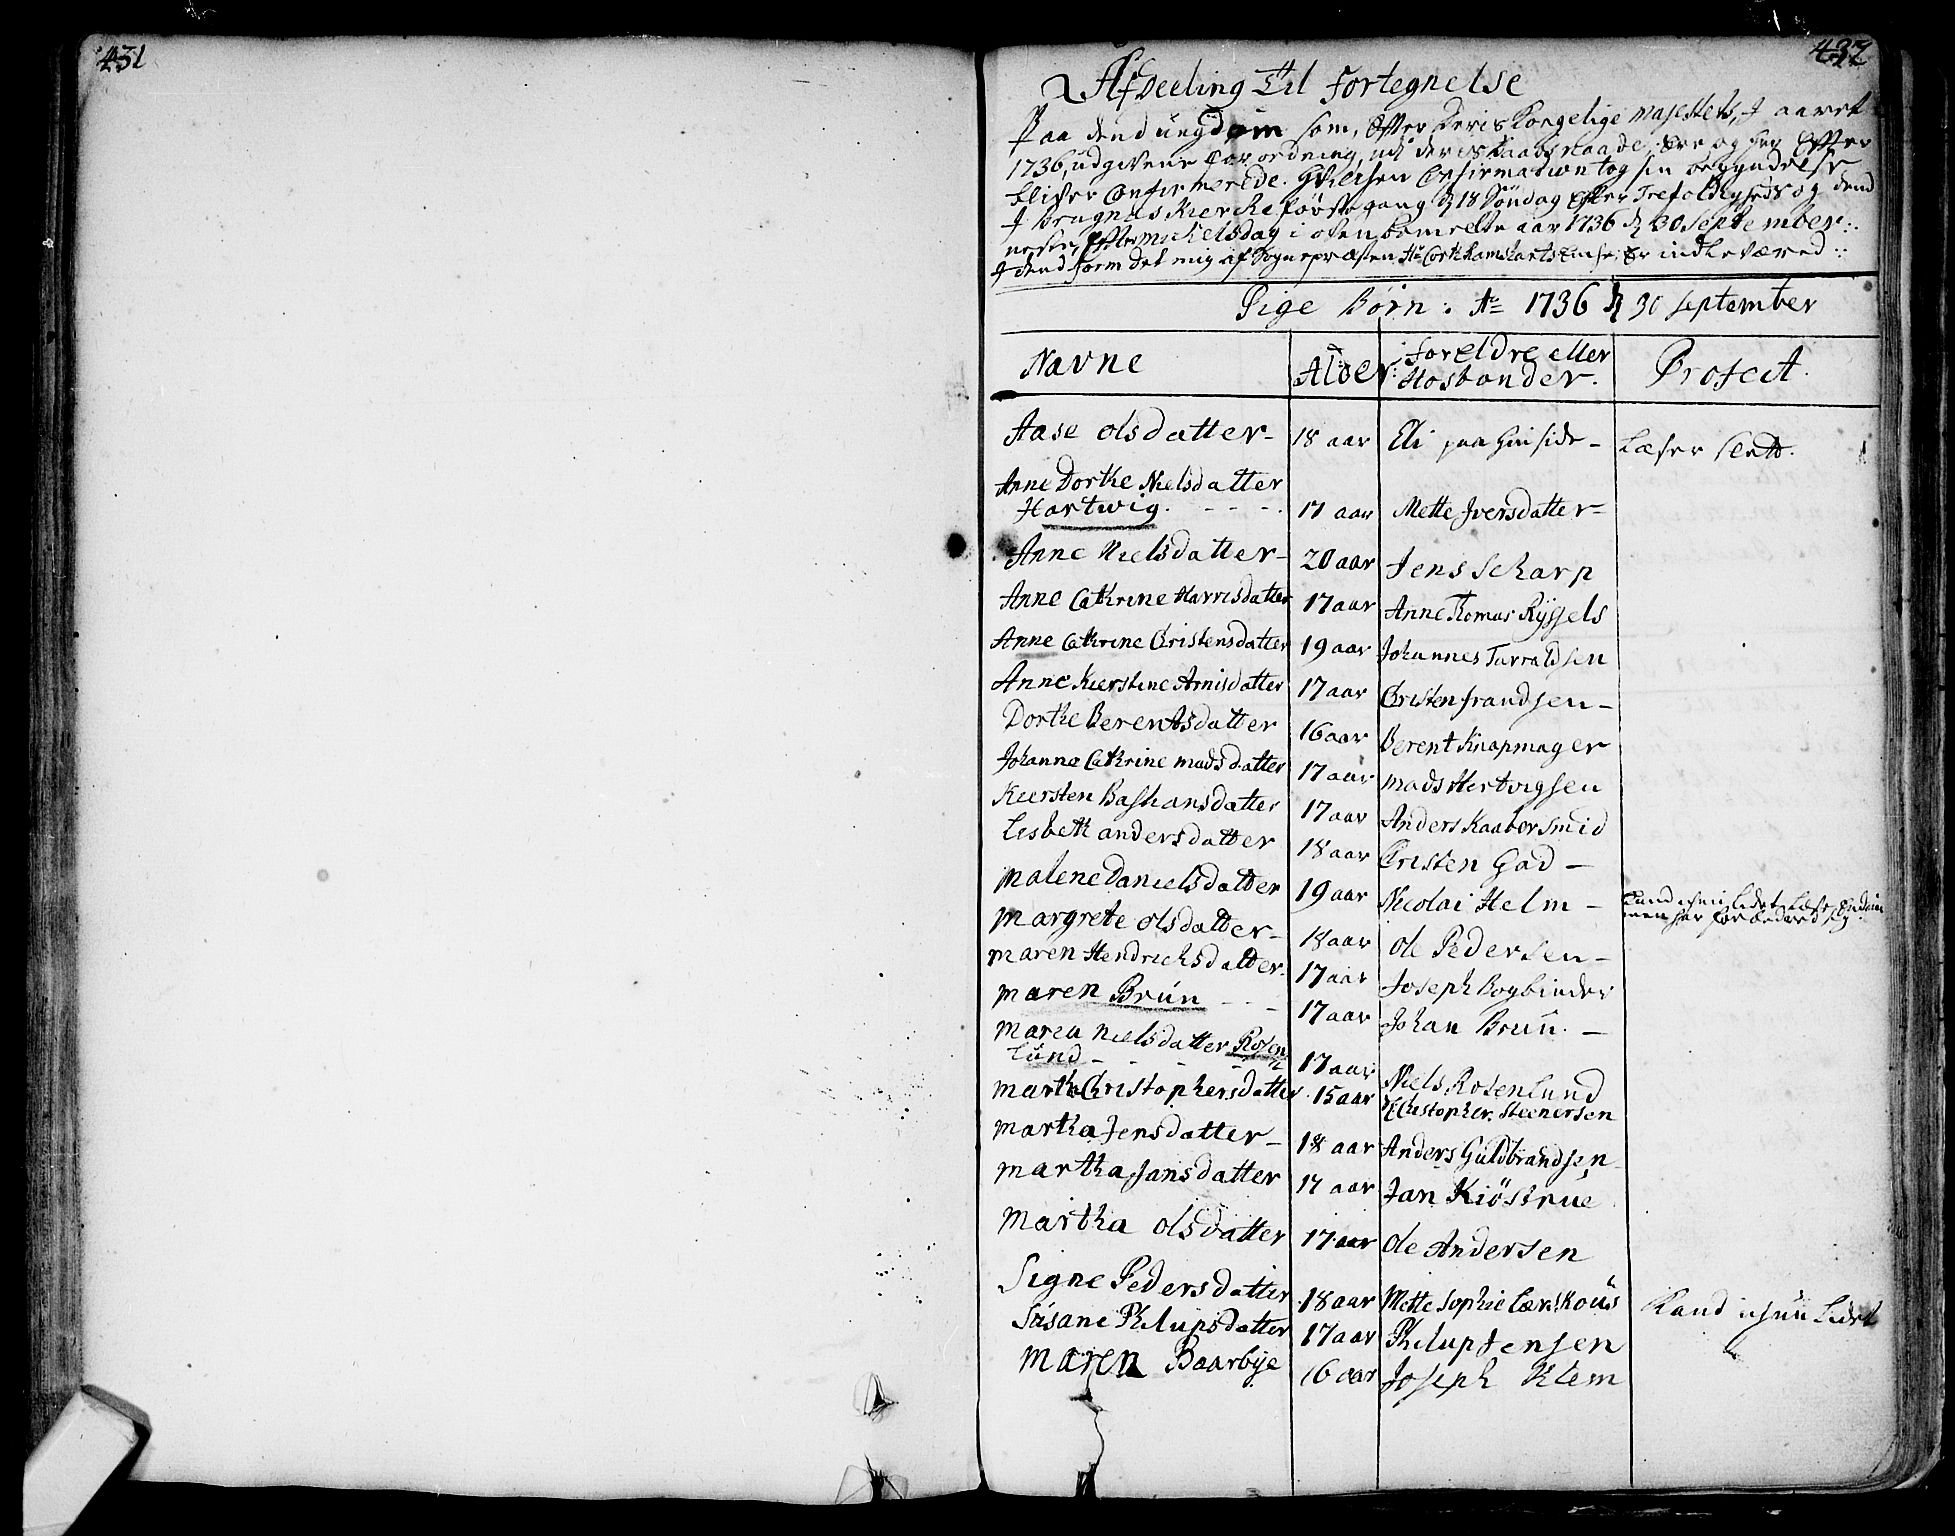 431
432
Afdeeling Til Fortegnelse
Paa dend ungdom som, Efter Deris Kongelige Majestets, I aaret
1736, udgivene For ordning, udi deris daabs naade, Ere og her Efter
bliver Confirmerede. Hvilchen Confirmation tog sin begyndelse
I Bragnæs Kierche første gang d 18 Søndag Efter Trefoldigheds og dend
neste Efter Michelsdag i oven bemelte aar 1736 d 30 September
I dend form det mig af Sognepræsten Hr er indleveret
Pige Børn: Ao 1736 d 30 September
Navne Alder: Foreldre eller Hosbonder. Profect.
Aase olsdatter- 18 aar Eli paa - Læser slett.
Anne Dorthe Nielsdatter
Hartwig. - - - 17 aar Mette Iversdatter=
Anne Nielsdatter- 20 aar Jens Scharp
Anne Cathrine Harrisdatter 17 aar Anne Thomas Ryssels
Anne Cathrine Christensdatter 19 aar Johannes Tarraldsen
Anne Kierstine Arnisdatter 17 aar Christen frandsen-
Dorthe Berentsdatter 16 aar Berent Knapmager
Johanne Cathrine madsdatter 17 aar mads Hertvigsen
Kiersten Bastiansdatter 17 aar Anders Kaabersmid
Lisbeth andersdatter 18 aar Christen Gad -
malene Danielsdatter 19 aar Nicolai Helm - Kand ichun lidet Læse
men har forædred sig.
margrete olsdatter- 18 aar ole Pedersen-
maren Hendrichsdatter. 17 aar Joseph Bogbinder
maren Brún - - - 17 aar Johan Brun. -
maren Nielsdatter Rosen
lund - - - - 17 aar Niels Rosenlund
martha Christophersdatter 15 aar Christopher Steenersen
martha Jensdatter- 18 aar Anders Guldbrandsen
martha Jansdatter 17 aar Jan Kiöstrue
Martha olsdatter 17 aar Ole Andersen
Signe Pedersdatter 18 aar Mette Sophie Kand ichun Lidet
Súsane Philupsdatter 17 aar Philup Jensen
maren Baarbye 16 aar Joseph Klem